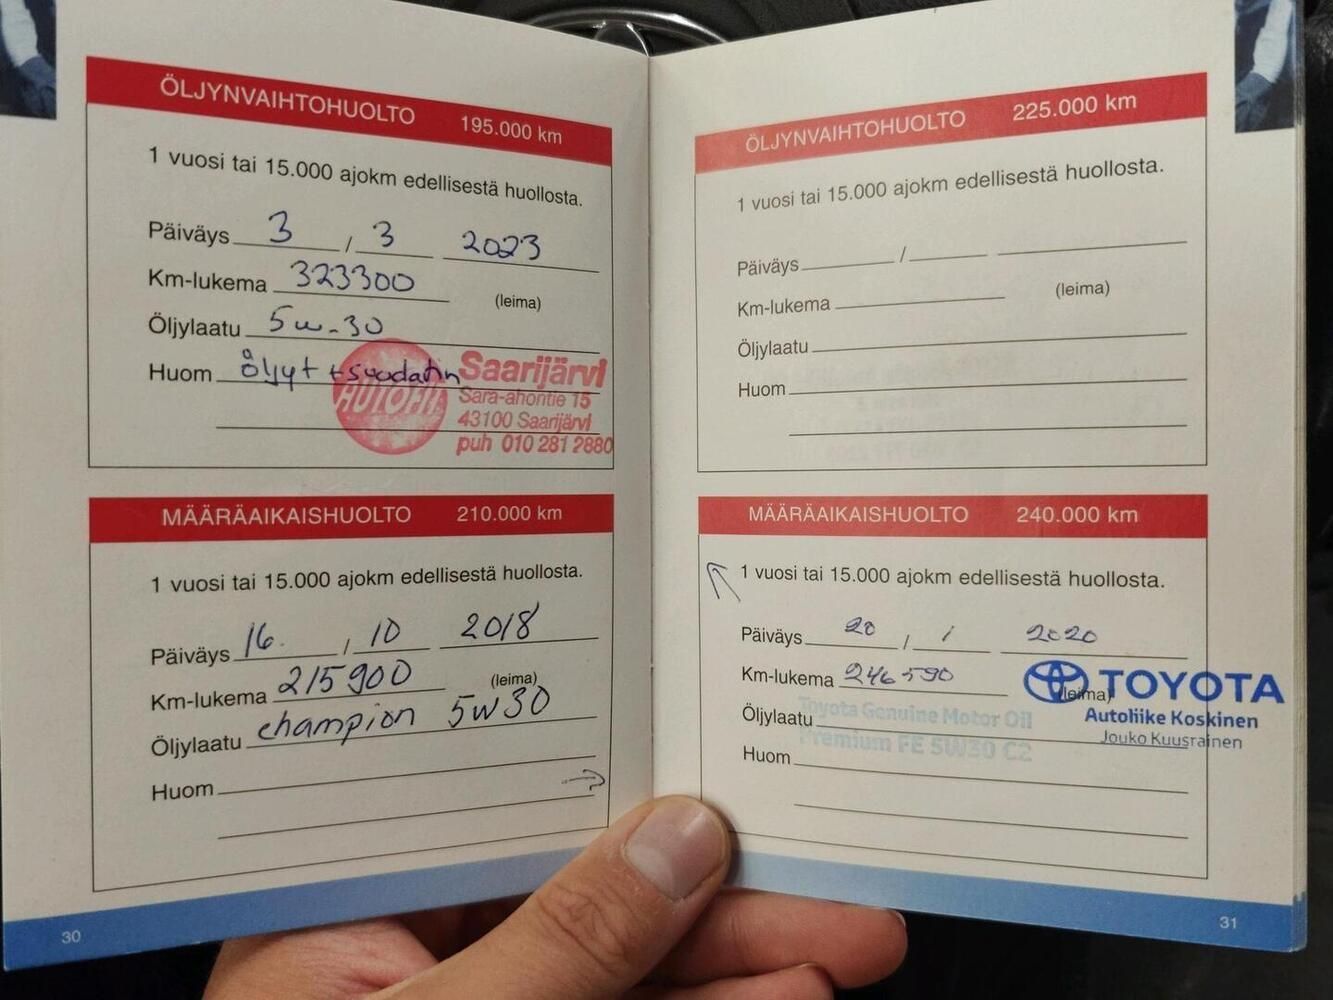 ÖLJYNVAIHTOHUOLTO 195.000 km
1 vuosi tai 15.000 ajokm edellisestä huollosta.
Päiväys 3 / 3 2023
Km-lukema 323300 (leima)
Öljylaatu 5w-30
Huom öljyt + suodatin
AUTOFIT Saarijärvi
Sara-ahontie 15
43100 Saarijärvi
puh 010 281 2880
MÄÄRÄAIKAISHUOLTO 210.000 km
1 vuosi tai 15.000 ajokm edellisestä huollosta.
Päiväys 16. / 10 2018
Km-lukema 215900 (leima)
Öljylaatu champion 5W30
Huom
30
ÖLJYNVAIHTOHUOLTO 225.000 km
1 vuosi tai 15.000 ajokm edellisestä huollosta.
Päiväys /
Km-lukema (leima)
Öljylaatu
Huom
MÄÄRÄAIKAISHUOLTO 240.000 km
1 vuosi tai 15.000 ajokm edellisestä huollosta.
Päiväys 20 / 1 2020
Km-lukema 246590 (leima)
TOYOTA
Autoliike Koskinen
Jouko Kuusrainen
Öljylaatu Toyota Genuine Motor Oil
Premium FE 5W30 C2
Huom
31